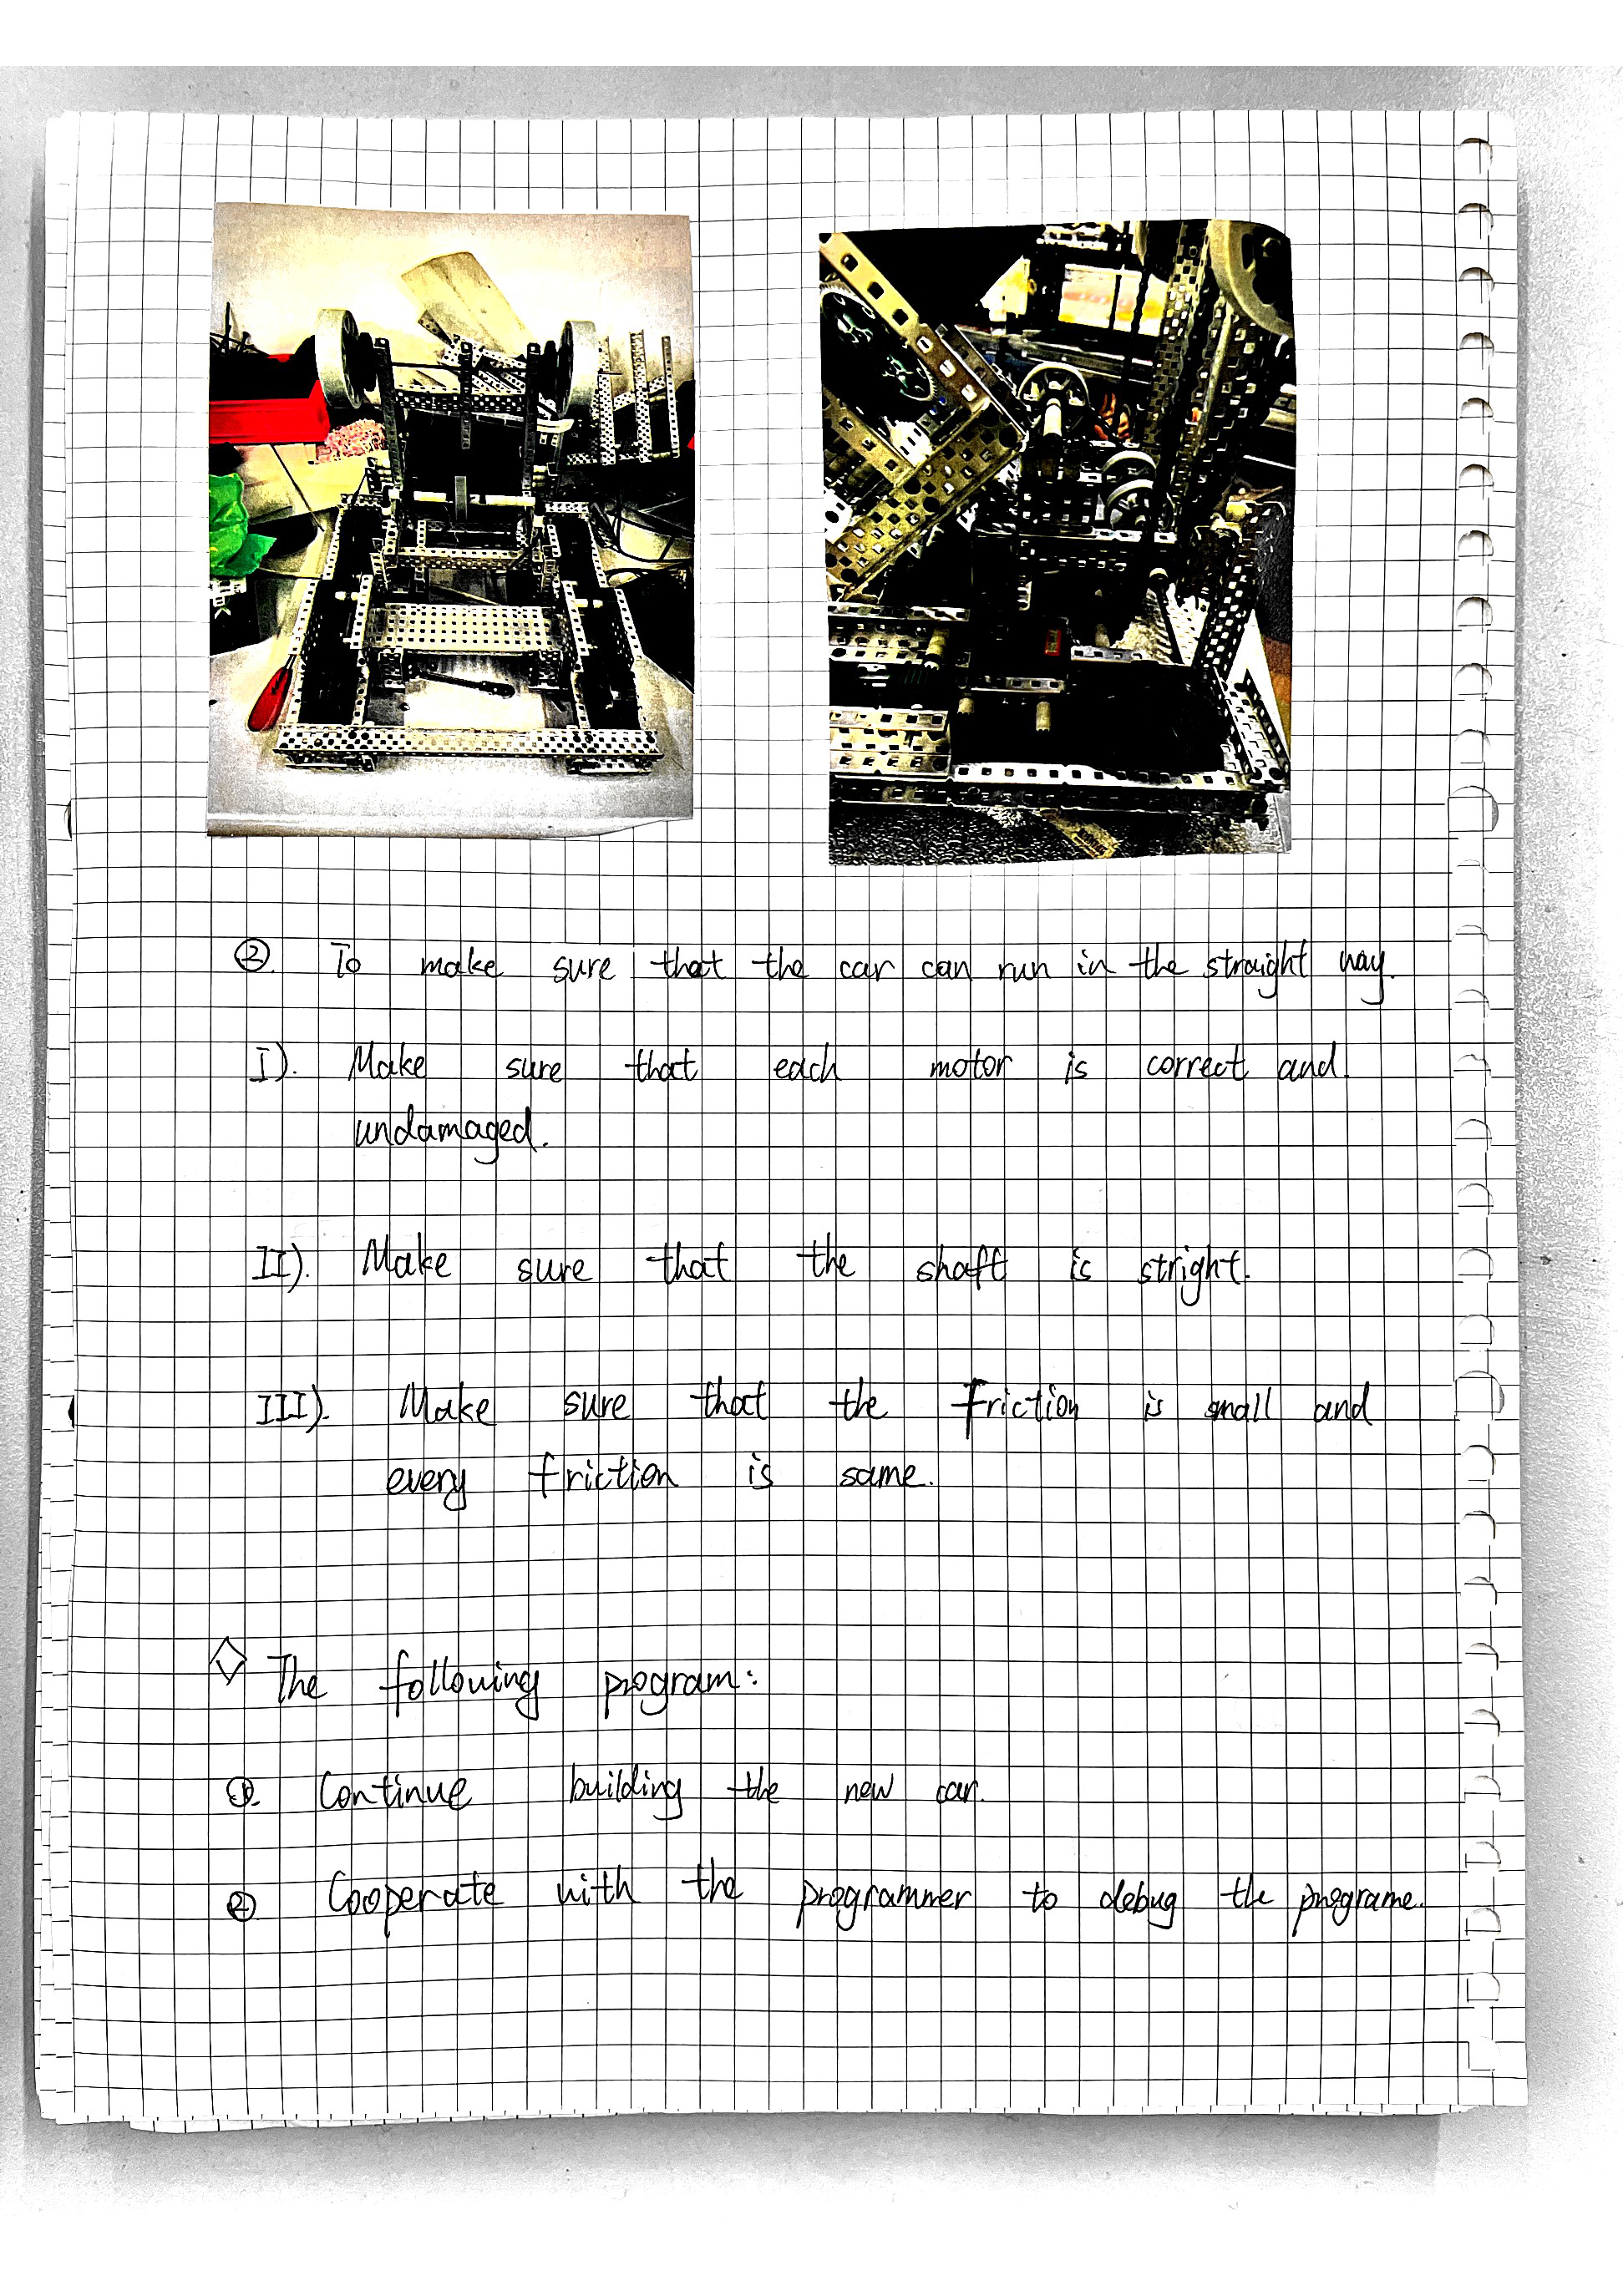 ②. To make sure that the car can run in the straight way.
I). Make sure that each motor is correct and
undamaged.
II). Make sure that the shaft is stright.
III). Make sure that the friction is small and
every friction is same.
◇ The following program:
①. Continue building the new car.
② Cooperate with the programmer to debug the programe.